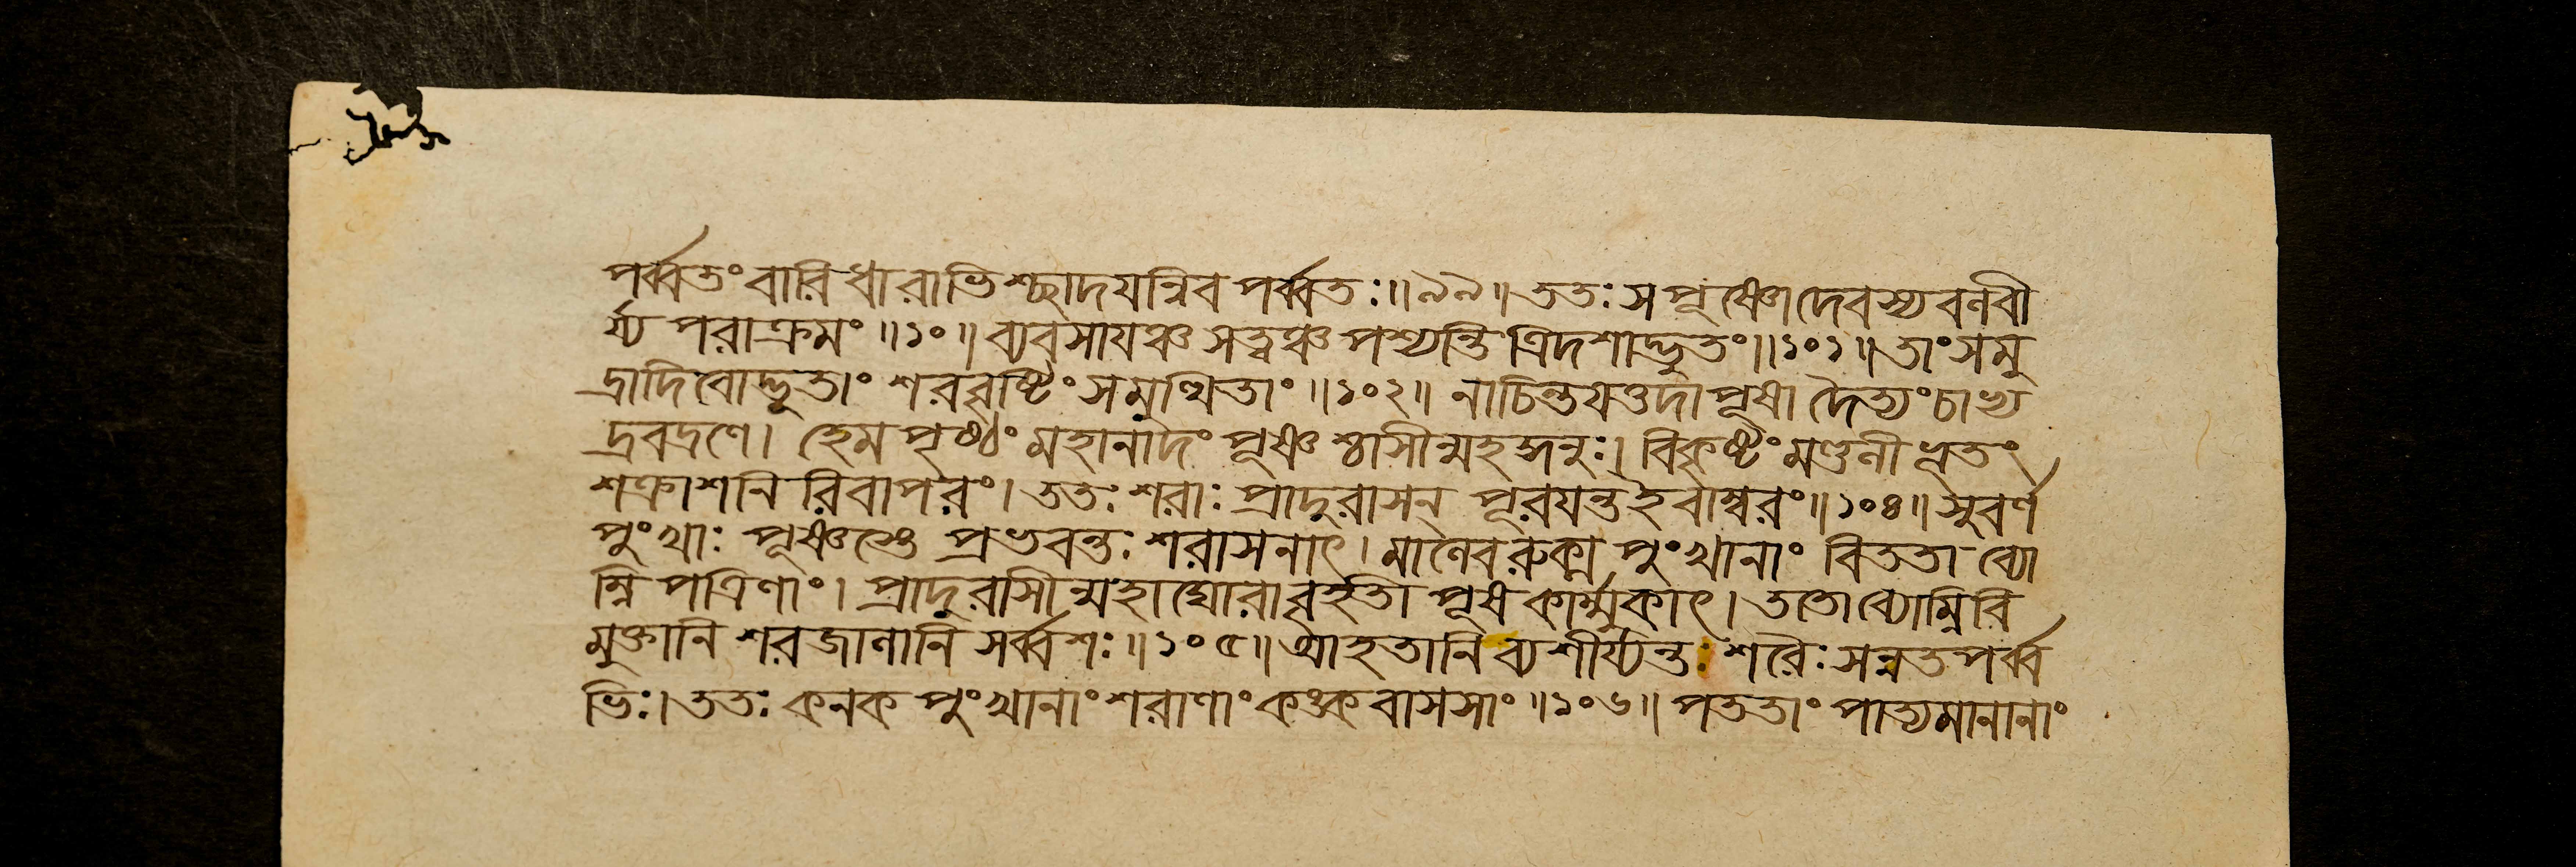 পর্ব্বতং বারিধারাভিশ্ছাদযন্নিব পর্ব্বতঃ॥৯৯॥ ততঃ স পূষ্ণো দেবস্য বলবী
র্য্য পরাক্রমং ॥১০॥ ব্যবসাযঞ্চ সত্ত্বঞ্চ পশ্যন্তি ত্রিদশাদ্ভুতং॥১০১॥ তাং সমু
দ্রাদিবোদ্ভূতাং শরবৃষ্টিং সমুত্থিতাং ॥১০২॥ নাচিন্তযত্তদা পূষা দৈত্যং চাভ্য
দ্রবদ্রণে। হেমপৃষ্ঠং মহানাদং পূষ্ণশ্চাসীন্মহদ্ধনুঃ। বিকৃষ্টং মণ্ডলীভূতং
শক্রাশনিরিবাপরং। ততঃ শরাঃ প্রাদুরাসন্ পূরযন্তইবাম্বরং॥১০৪॥ সুবর্ণ
পুংখাঃ পূষ্ণস্তে প্রভবন্তঃ শরাসনাৎ। মালেবরুক্মপুংখানাং বিততা ব্যো
ম্নি পত্রিণাং। প্রাদুরাসীন্মহাঘোরা বৃহতী পূষকার্ম্মুকাৎ। ততো ব্যোম্নি বি
মুক্তানি শরজালানি সর্ব্বশঃ॥১০৫॥ আহতানি ব্যশীর্য্যন্তঃ শরৈঃ সন্নতপর্ব্ব
ভিঃ। ততঃ কনকপুংখানাং শরাণাং কঙ্কবাসসাং ॥১০৬॥ পততাং পাত্যমানানাং